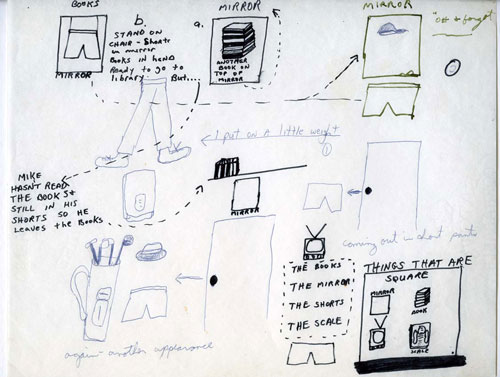 BOOKS
MIRROR
b.
STAND ON
CHAIR - Shorts
in mirror
BOOKS IN hEND
Ready to go to
library. But....
a.
MIRROR
ANOTHER
BOOK ON
TOP OF MIRROR
MIRROR
I put on A little weight
①
MIKE
HASN'T READ
THE BOOKS &
STILL IN his
SHORTS SO HE
LEAVES the BOOKS
MIRROR
coming out in short pants
THE BOOKS
THE MIRROR
THE SHORTS
THE SCALE
THINGS THAT ARE
SQUARE
MIRROR
BOOK
TV
SCALE
again another appearance